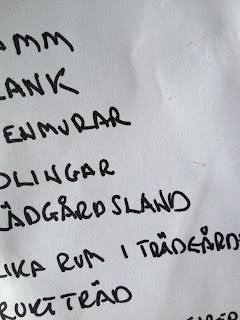 AMM
LANK
ENMURAR
DLINGAR
ÄDGÅRDSLAND
LIKA RUM I TRÄDGÅRD
RUKTTRÄD